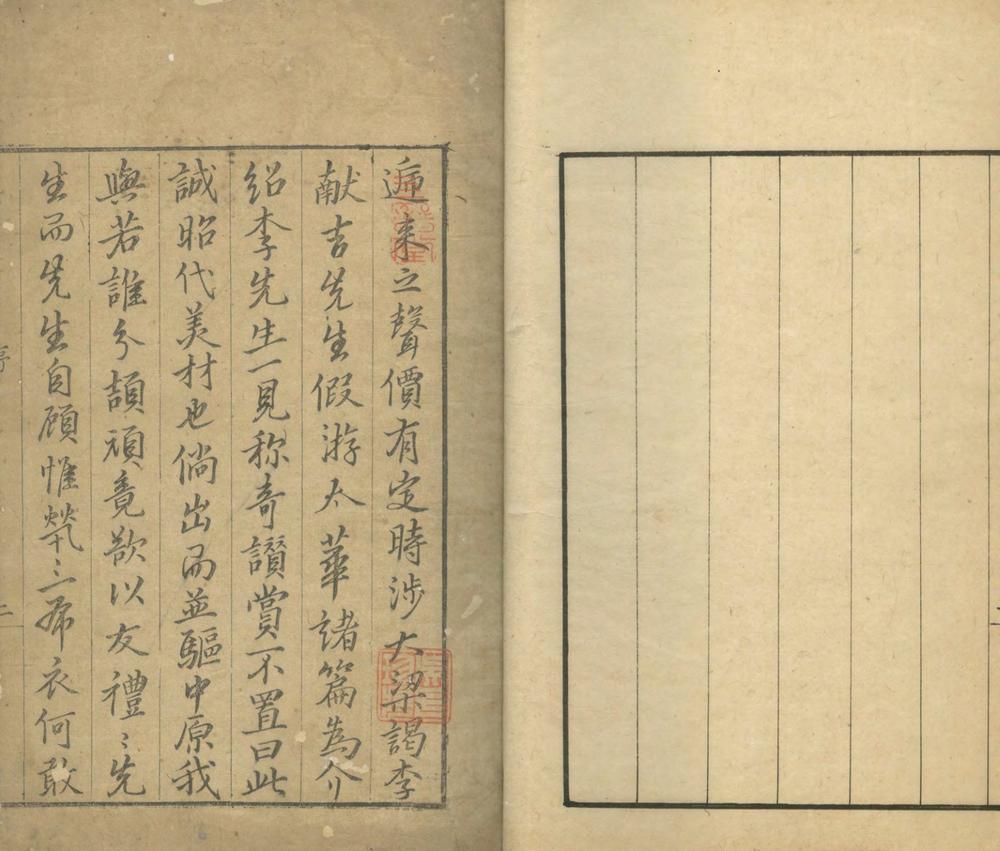 逓来之聲價有定時涉大梁謁李
献吉先生假游太華諸篇為介
紹李先生一見称奇讃賞不置曰此
誠昭代美材也倘出而並驅中原我
與若誰分頡頑竟欲以友禮〻先
生而先生自顧惟煢〻一布衣何敢
序
二